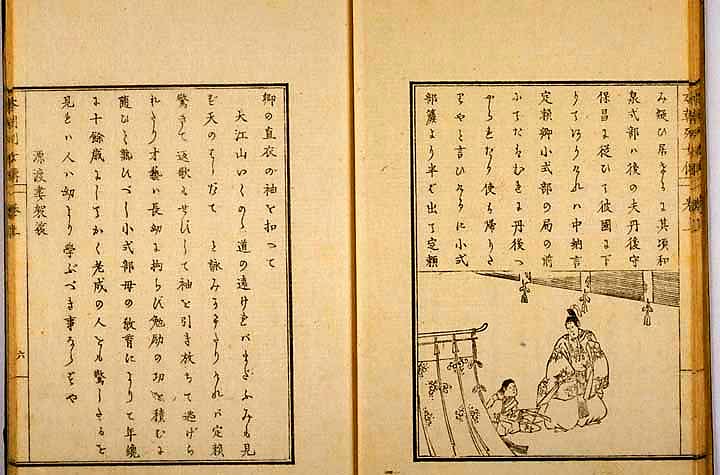 み疑ひ居
るに其頃和
泉式部ハ後の夫丹後守
保昌に従ひて彼國に下
りて
れハ中納言
定頼卿小式部の局の前
丹後へ
やられたり使も帰り
やと言ひ
るに小式
部簾より半
出て定頼
卿の直衣の袖を扣って
大江山いくのゝ道の遠けれバまだふみも見
ず天のはしだて と詠みかけたりけれバ定頼
驚きて返歌もせずして袖を引き放ちて逃げら
れたり才藝ハ長幼に拘らず勉励の功を積むに
随ひて
べし小式部母の教育によりて年纔
に十餘歳にしてかく老成の人をも驚したるを
見れハ人ハ幼より學ぶべき事ならずや
源渡妻袈裟
六